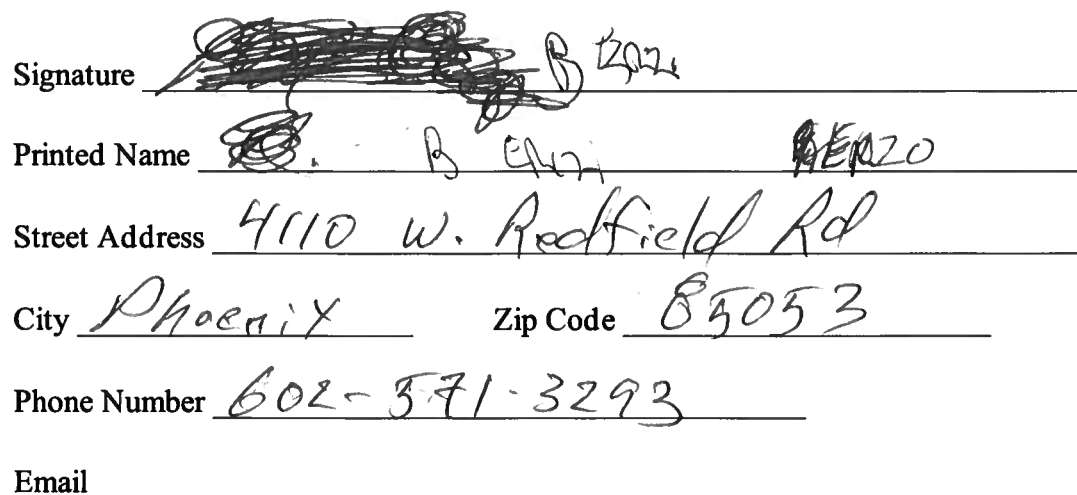 Signature B
Printed Name B
Street Address 4110 W. Redfield Rd
City Phoenix Zip Code 85053
Phone Number 602-571-3293
Email